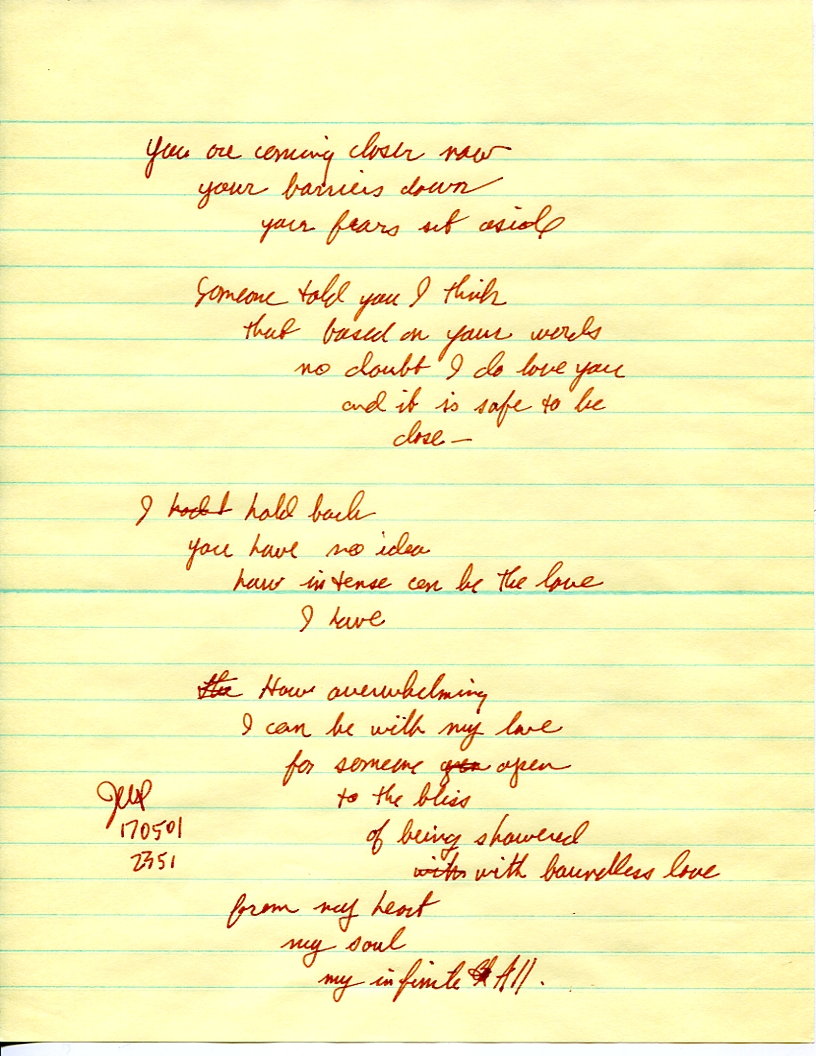 You are coming closer now
your barriers down
your fears set aside
Someone told you I think
that based on your words
no doubt I do love you
and it is safe to be
close —
I hold back
you have no idea
how intense can be the love
I have
the How overwhelming
I can be with my love
for someone open
to the bliss
of being showered
with with boundless love
from my heart
my soul
my infinite All.
170501
2351